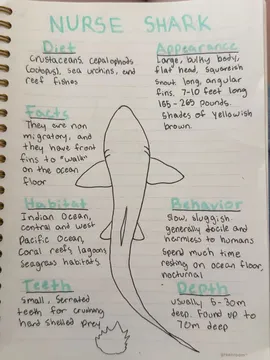 NURSE SHARK
Diet
Crustaceans, cephalophods
(octopus), sea urchins, and
reef fishes
Appearance
Large, bulky body,
flat head, squareish
snout. long, angular
fins. 7-10 feet long
165-265 pounds.
Shades of yellowish
brown.
Facts
They are non
migratory, and
they have front
fins to "walk"
on the ocean
floor
Habitat
Indian Ocean,
central and west
Pacific Ocean,
Coral reefs lagoons,
Seagrass habitats
Behavior
Slow, sluggish
generally docile and
harmless to humans
Spend much time
resting on ocean floor,
nocturnal
Teeth
Small, Serrated
teeth for crushing
hard shelled prey
Depth
usually 5-30m
deep. found up to
70m deep